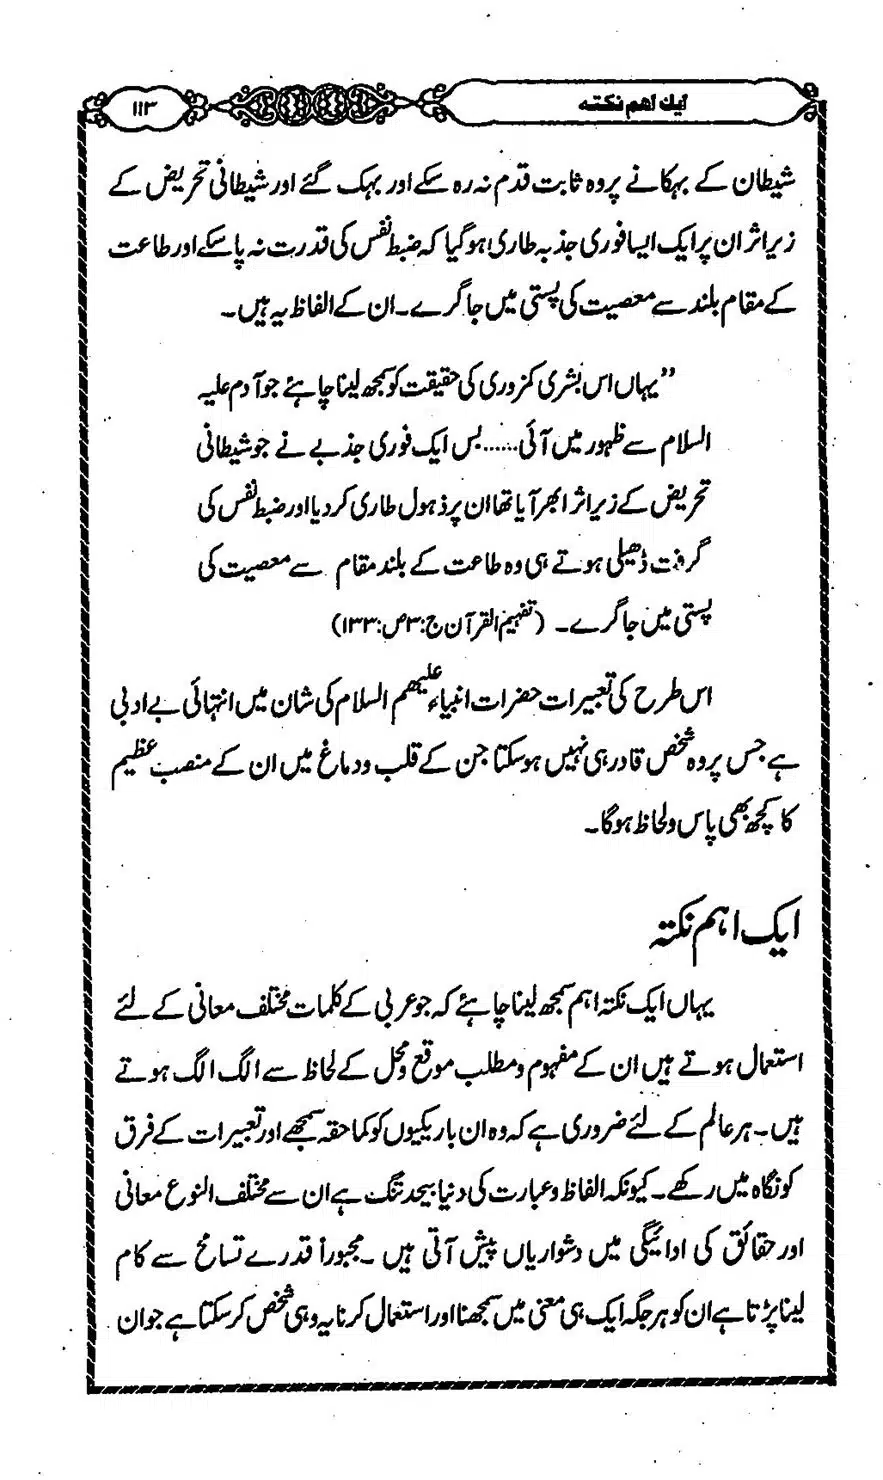 ایک اہم نکتہ
۱۱۳
شیطان کے بہکانے پر وہ ثابت قدم نہ رہ سکے اور بہک گئے اور شیطانی تحریض کے
زیر اثر ان پر ایک ایسا فوری جذبہ طاری ہوگیا کہ ضبط نفس کی قدرت نہ پا سکے اور طاعت
کے مقام بلند سے معصیت کی پستی میں جا گرے۔ ان کے الفاظ یہ ہیں۔
”یہاں اس بشری کمزوری کی حقیقت کو سمجھ لینا چاہئے جو آدم علیہ
السلام سے ظہور میں آئی...... بس ایک فوری جذبے نے جو شیطانی
تحریض کے زیر اثر ابھر آیا تھا ان پر ذہول طاری کر دیا اور ضبط نفس کی
گرفت ڈھیلی ہوتے ہی وہ طاعت کے بلند مقام سے معصیت کی
پستی میں جا گرے۔ (تفہیم القرآن ج:۳ ص:۱۳۳)
اس طرح کی تعبیرات حضرات انبیاء علیھم السلام کی شان میں انتہائی بے ادبی
ہے جس پر وہ شخص قادر ہی نہیں ہوسکتا جن کے قلب و دماغ میں ان کے منصب عظیم
کا کچھ بھی پاس و لحاظ ہوگا۔
ایک اہم نکتہ
یہاں ایک نکتہ اہم سمجھ لینا چاہئے کہ جو عربی کے کلمات مختلف معانی کے لئے
استعمال ہوتے ہیں ان کے مفہوم و مطلب موقع و محل کے لحاظ سے الگ الگ ہوتے
ہیں۔ ہر عالم کے لئے ضروری ہے کہ وہ ان باریکیوں کو کما حقہ سمجھے اور تعبیرات کے فرق
کو نگاہ میں رکھے۔ کیونکہ الفاظ و عبارت کی دنیا بیحد تنگ ہے ان سے مختلف النوع معانی
اور حقائق کی ادائیگی میں دشواریاں پیش آتی ہیں ۔ مجبوراً قدرے تسامح سے کام
لینا پڑتا ہے ان کو ہر جگہ ایک ہی معنی میں سمجھنا اور استعمال کرنا یہ وہی شخص کرسکتا ہے جو ان